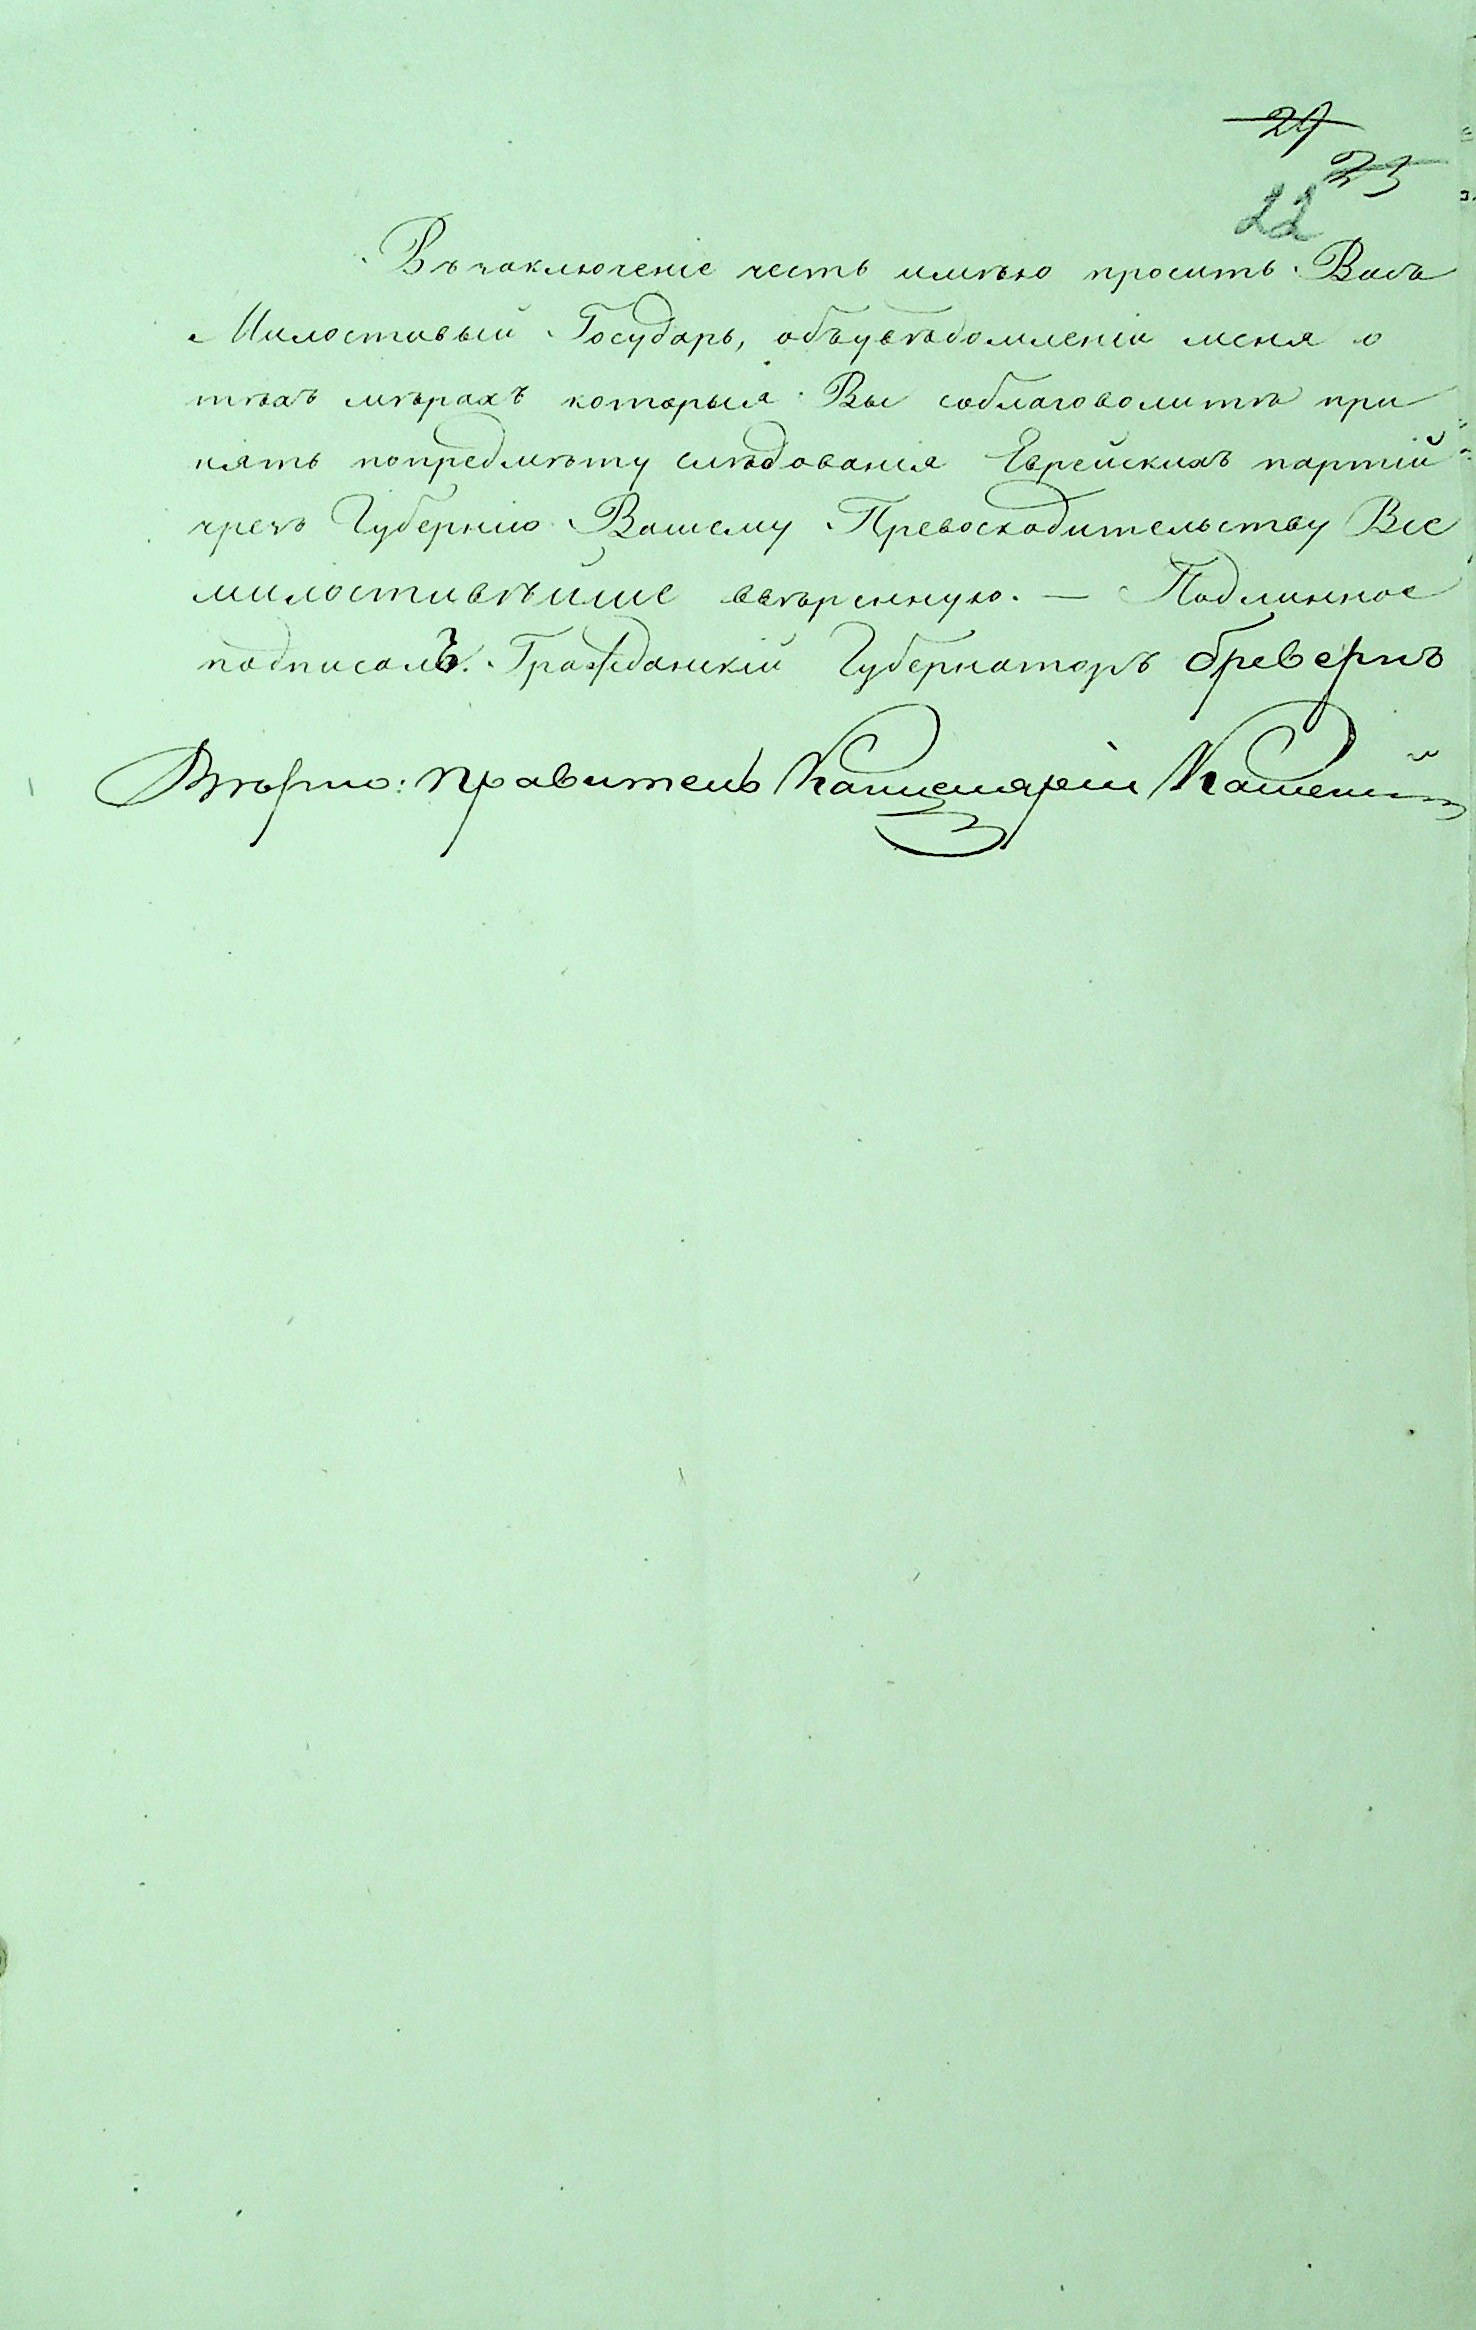 29
25
22
Въ заключеніе честь имѣю просить Васъ
Милостивый Государь, объувѣдомленіи меня о
тѣхъ мѣрахъ которыя Вы соблаговолите при
нять попредмѣту слѣдованія Еврейскихъ партій
чрезъ Губернію Вашему Превосходительству Все
милостивѣйше ввѣренную. — Подлинное
подписалъ. Гражданскій Губернаторъ Бревернъ
Вѣрно: Правитель Канцеляріи